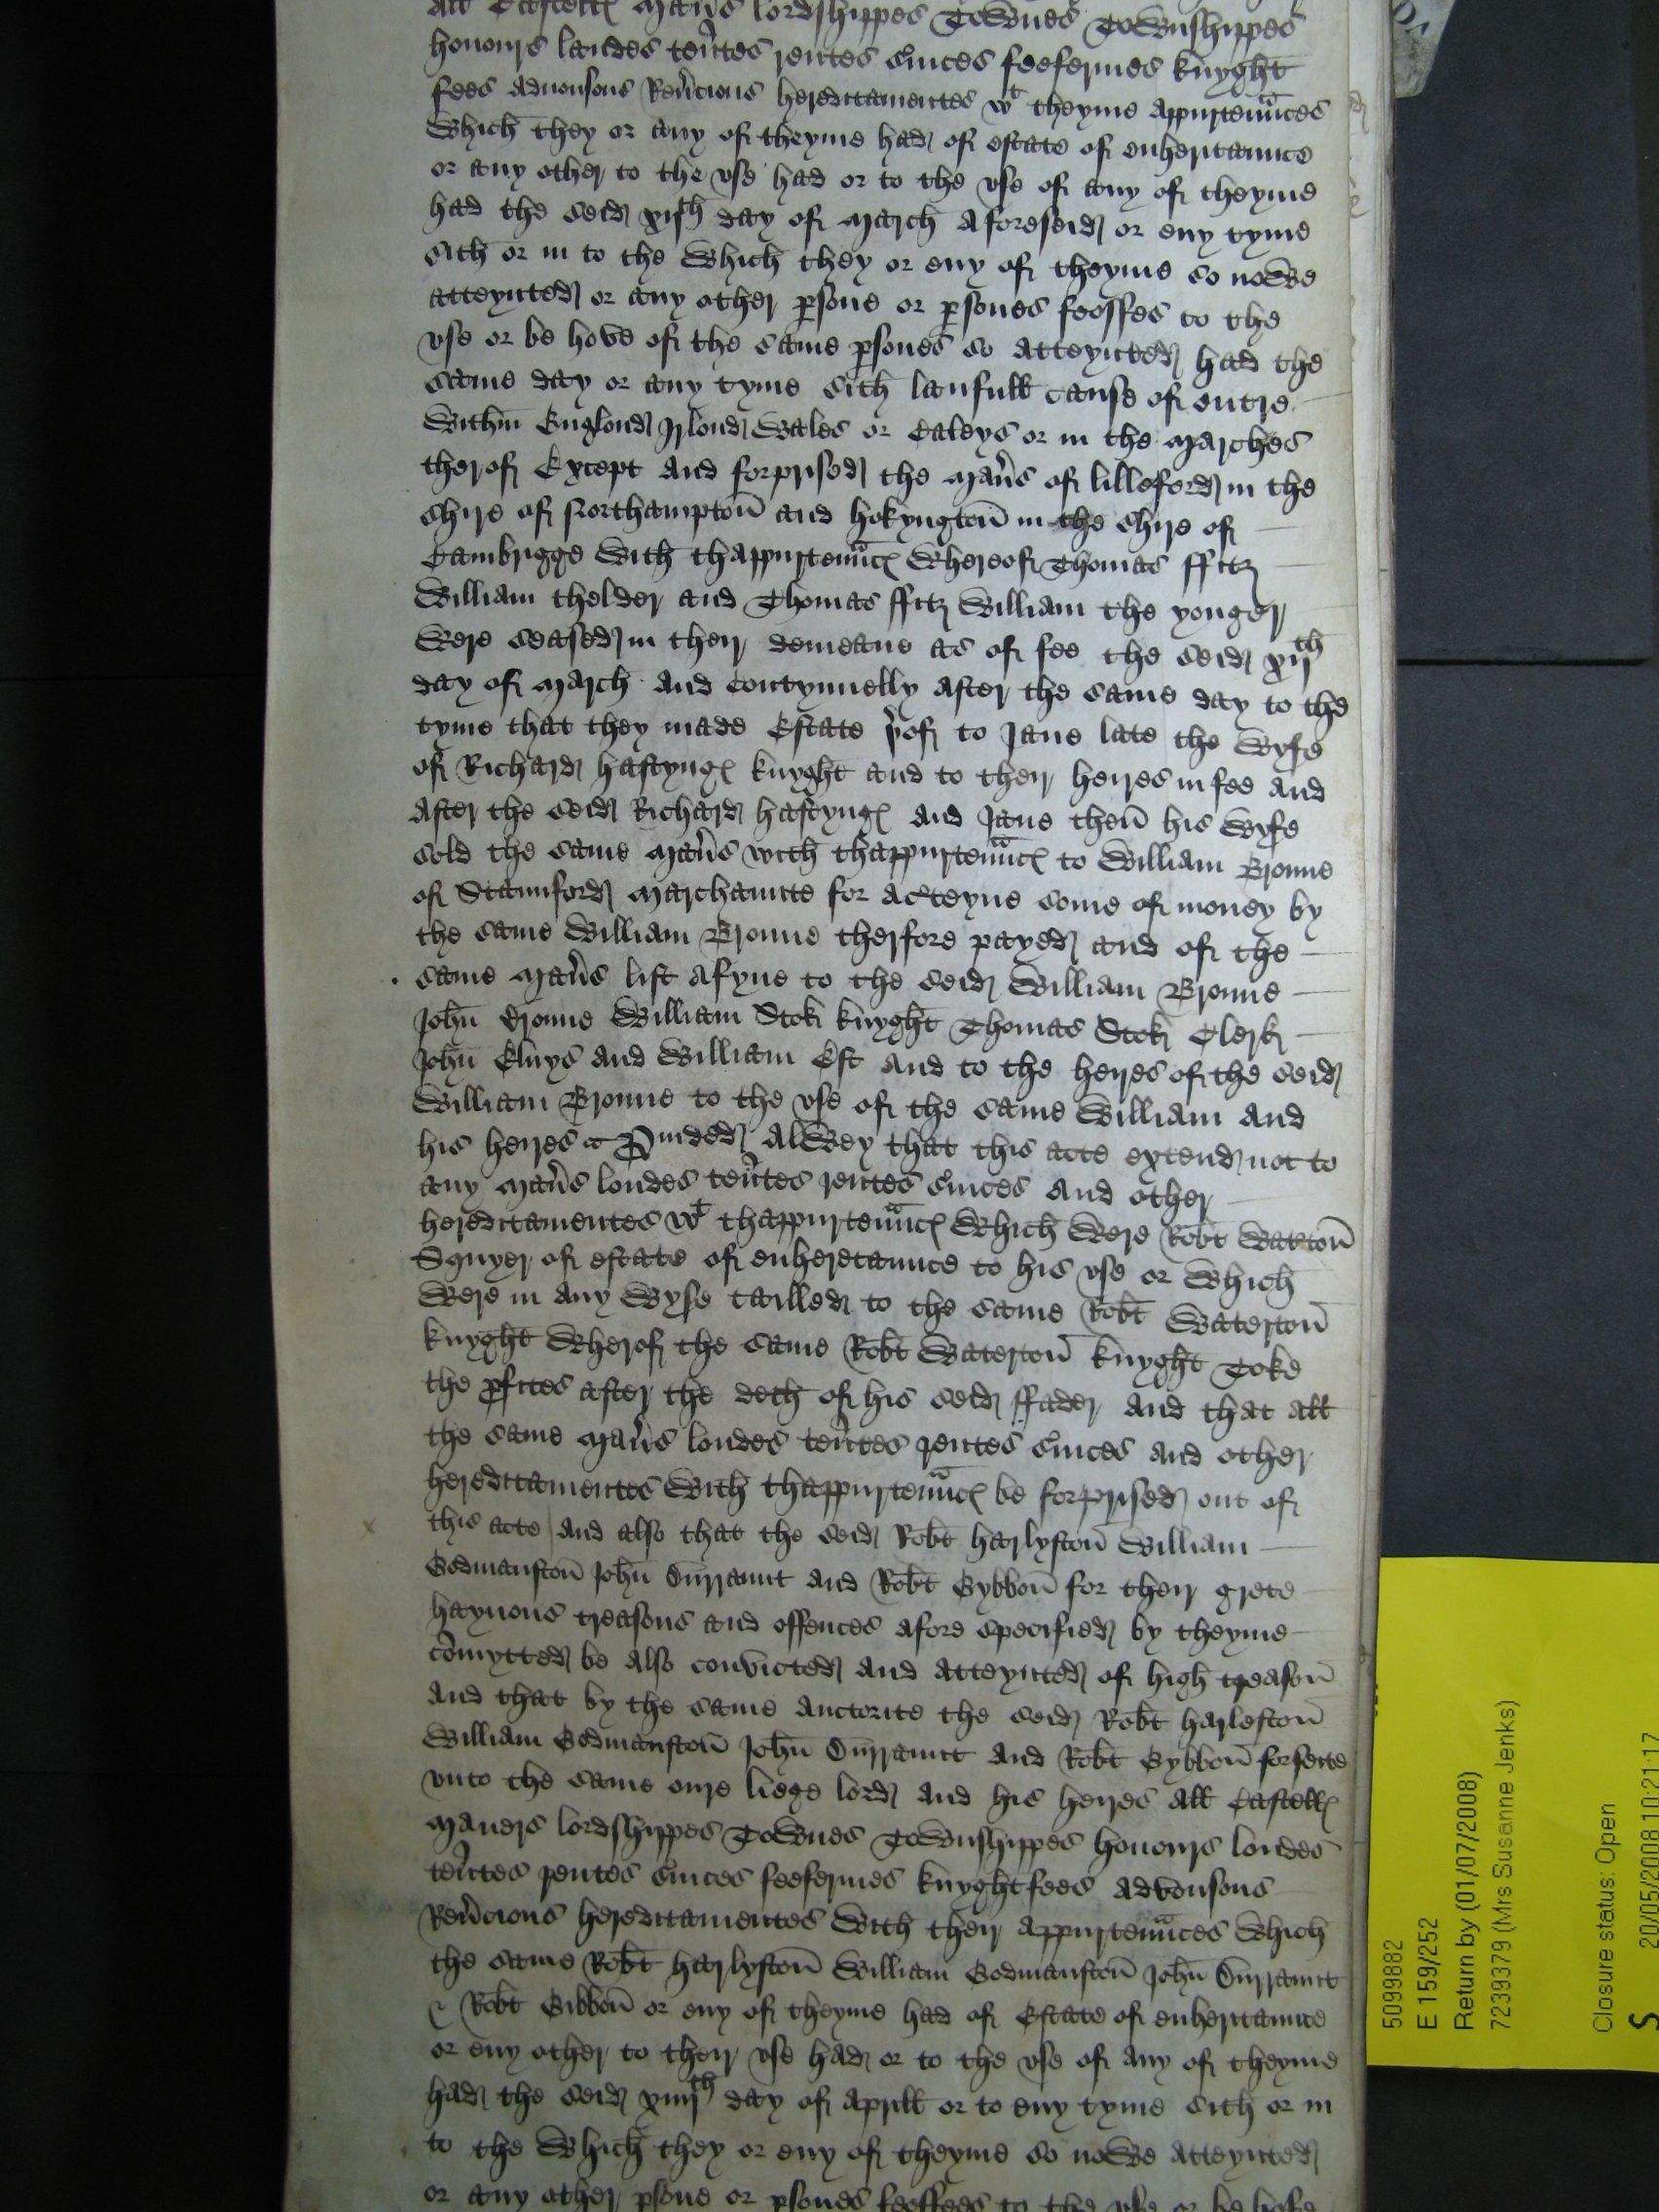 all Castellx Man's lordshippes Townes Townshippes
honours landes ten'tes rentes s'uices feefermes knyght
fees aduousons Reu'cions hereditamentes wt theyme appurtenau'ces
Which they or any of theyme had of estate of enheritaunce
or any other to the vse had or to the vse of any of theyme
had the seid xijth day of March aforeseid or eny tyme
sith or in to the Which they or eny of theyme so nowe
atteynted or any other psone or psones feoffes to the
vse or be hove of the same psones so atteynted had the
same day or any tyme sith laufull cause of entre
Within Englond Irlond Wales or Caleys or in the Marches
therof Except and forprised the Man's of lilleford in the
Shire of Northampton and hokyngton in the Shire of
Cambrigge With thappurtenau'cx Whereof Thomas ffitz
William thelder and Thomas ffitz William the yonger
Were seased in their demeane as of fee the seid xijth
day of March and contynuelly after the same day to the
tyme that they made Estate y'of to Jane late the Wyfe
of Richard hastyngx knyght and to their heires in fee and
after the seid Richard hastyngx and Jane then his Wyfe
sold the same Man's with thappurtenau'cx to William Broune
of Staunford Marchaunte for acteyne some of money by
the same William Broune therfore payed and of the
same Man's lift afyne to the seid William Broune
John Broune William Stok knyght Thomas Stok Clerk
John Eluys and William Est and to the heires of the seid
William Broune to the vse of the same William and
his heires &c Puided alwey that this acte extend not to
any Man's londes ten'tes rentes s'uices and other
hereditamentes wt thappurtenau'cx Which Were Robt Watton
Squyer of estate of enheretaunce to his vse or Which
Were in any Wyse tailled to the same Robt Waterton
knyght Wherof the same Robt Waterton knyght Toke
the pfites after the deth of his seid ffader and that all
the same Man's londes ten'tes rentes s'uices and other
hereditamentes With thappurtenau'cx be forprised out of
this acte and also that the seid Robt harlyston William
Godmanston John Durraunt and Robt Gybbon for their grete
haynous treasons and offences afore specified by theyme
co'mytted be also convicted and atteynted of high treason
And that by the same auctorite the seid Robt harleston
William Godmanston John Durraunt and Robt Gybbon forfette
vnto the same oure liege lord and his heires all Castellx
Maners lordshippes Townes Townshippes honours londes
ten'tes rentes s'uices feefermes knyghtfees advousons
Reu'cions hereditamentes With their appurtenau'ces Which
the same Robt harlyston William Godmanston John Durraunt
& Robt Gibbon or eny of theyme had of Estate of enheritaunce
or eny other to their vse had or to the vse of any of theyme
had the seid xiiijth day of aprill or to eny tyme sith or in
to the Which they or eny of theyme so nowe atteynted
or any other psone or psones feoffees to the vse or be hove
5099882
E 159/252
Return by (01/07/2008)
7239379 (Mrs Susanne Jenks)
Closure status: Open
20/05/2008 10:21:17
S